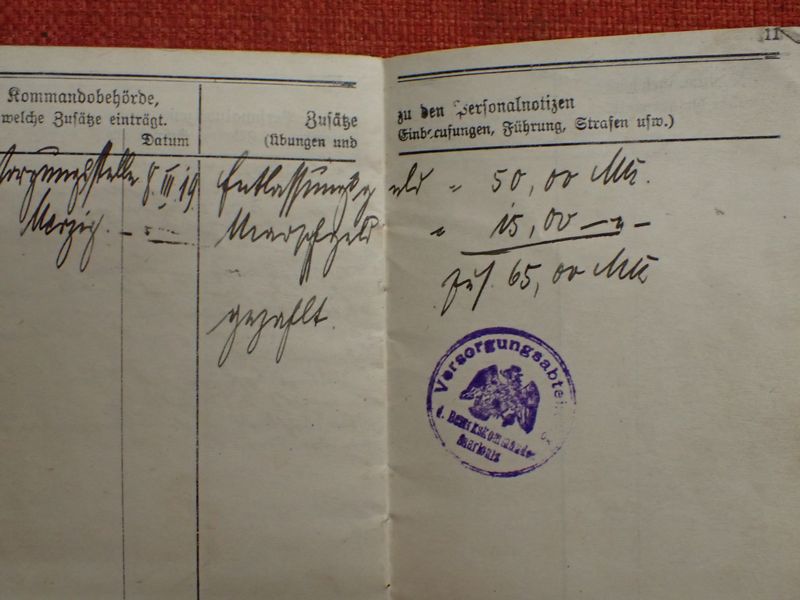 11
Kommandobehörde,
welche Zusätze einträgt.
Datum
Zusätze
(Übungen und
zu den Personalnotizen
Einberufungen, Führung, Strafen usw.)
sorgungsstelle 8. III 19. Entlassungsgeld „ 50,00 Mk.
Merzig. Marschgeld „ 15,00 – „ –
zus. 65,00 Mk
gezahlt.
Versorgungsabteil
d. Bezirkskommandos
Saarlouis